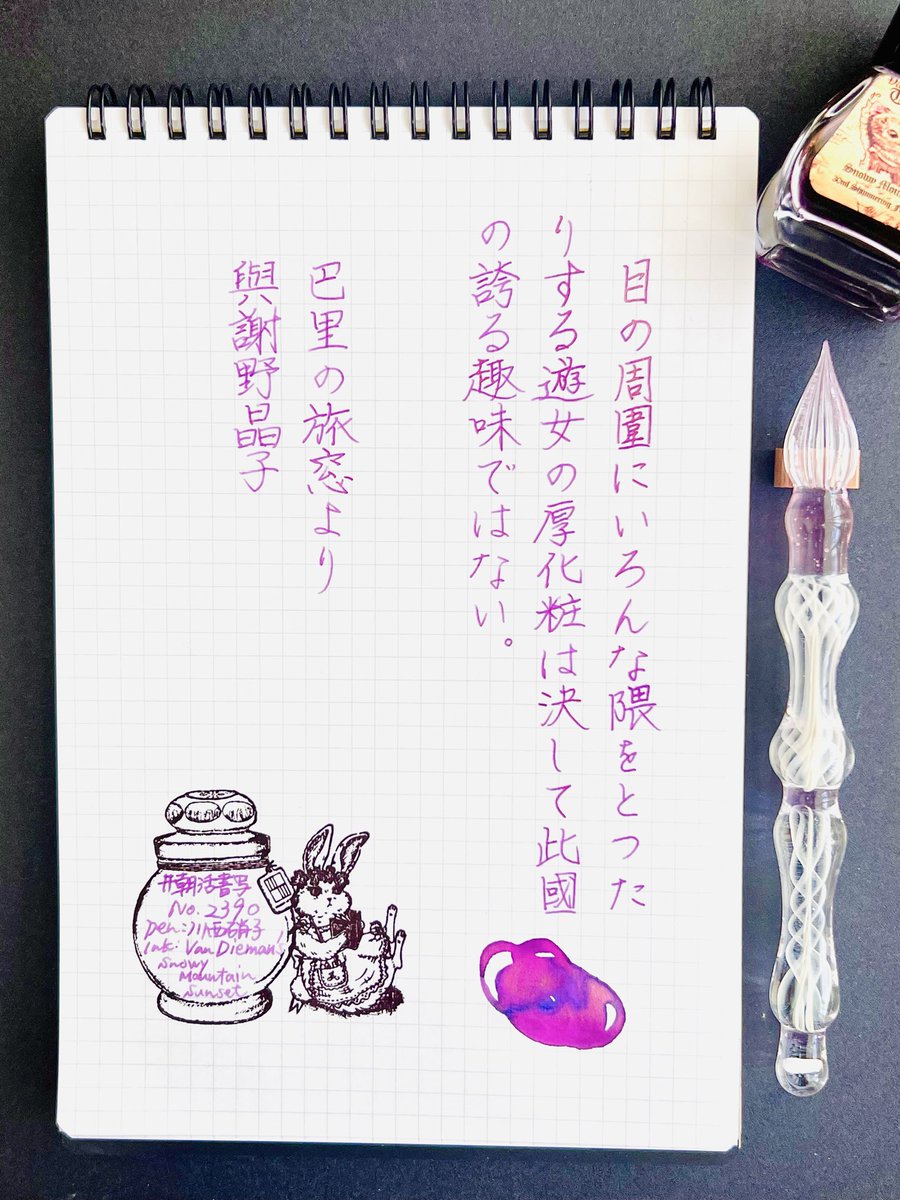 目の周圍にいろんな隈をとつた
りする遊女の厚化粧は決して此國
の誇る趣味ではない。
巴里の旅窓より
與謝野晶子
#朝活書写
No.2390
Pen:川西硝子
Ink: Van Dieman's
Snowy
Mountain
Sunset
Snowy Moun